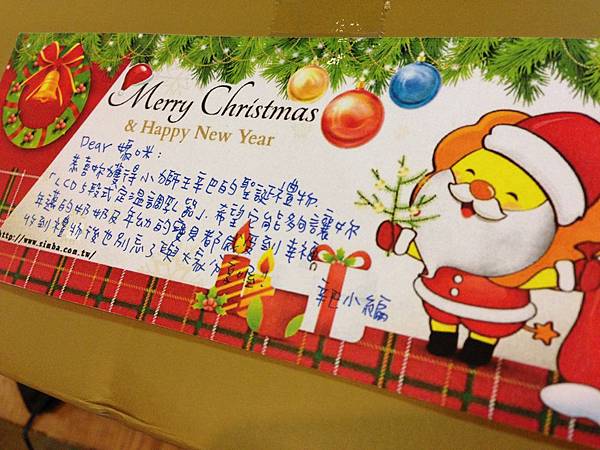 Merry Christmas
& Happy New Year
Dear 媽咪:
恭喜妳獲得小獅王辛巴的聖誕禮物
「LCD 5段式定溫調乳器」、希望它能夠讓妳
年邁的奶奶及年幼的寶貝都感受到幸福。
收到禮物後也別忘了與大家分享喔!
辛巴小編
http://www.simba.com.tw/